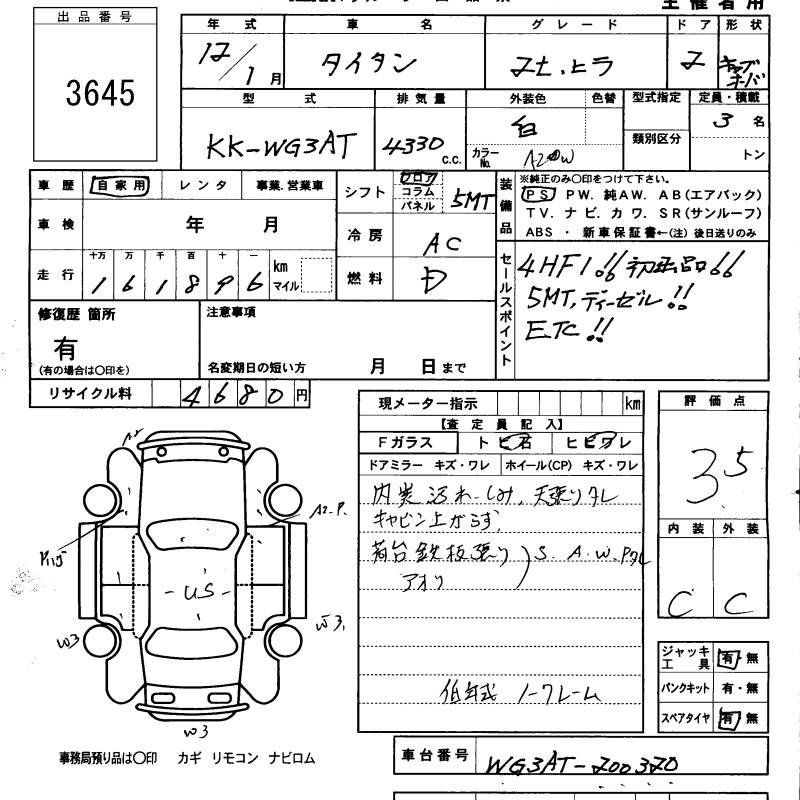 主催者用
出品番号
3645
年式 車名 グレード ドア 形状
12/1月 タイタン 2t、ヒラ 2 キャブオーバ
型式 排気量 外装色 色替 型式指定 定員・積載
KK-WG3AT 4330 c.c. 白 カラーNo. A20W 類別区分 3名 トン
車歴 自家用 レンタ 事業.営業車
シフト フロア コラム パネル 5MT
装備品 ※純正のみ〇印をつけて下さい。
PS PW. 純AW. AB(エアバック)
TV. ナビ. カワ. SR(サンルーフ)
ABS ・ 新車保証書←(注) 後日送りのみ
車検 年 月
冷房 AC
走行 十万 万 千 百 十 一
161896 km マイル
燃料 D
セールスポイント
4HF1!! 初出品!!
5MT,ディーゼル!!
ETC!!
修復歴 箇所
有
(有の場合は〇印を)
注意事項
名変期日の短い方 月 日まで
リサイクル料 4680円
現メーター指示 km
【査定員記入】
Fガラス トビ石 ヒビワレ
ドアミラー キズ・ワレ ホイール(CP) キズ・ワレ
内装汚れ、しみ、天張りタレ
キャビン上がらず、
荷台鉄板張り
アオリ
S. A. W. Pタレ
低年式 ノークレーム
評価点
3.5
内装 外装
C C
ジャッキ工具 有・無
パンクキット 有・無
スペアタイヤ 有・無
A2
A2-P.
US
W3
W3
W3
事務局預り品は〇印 カギ リモコン ナビロム
車台番号 WG3AT-200320